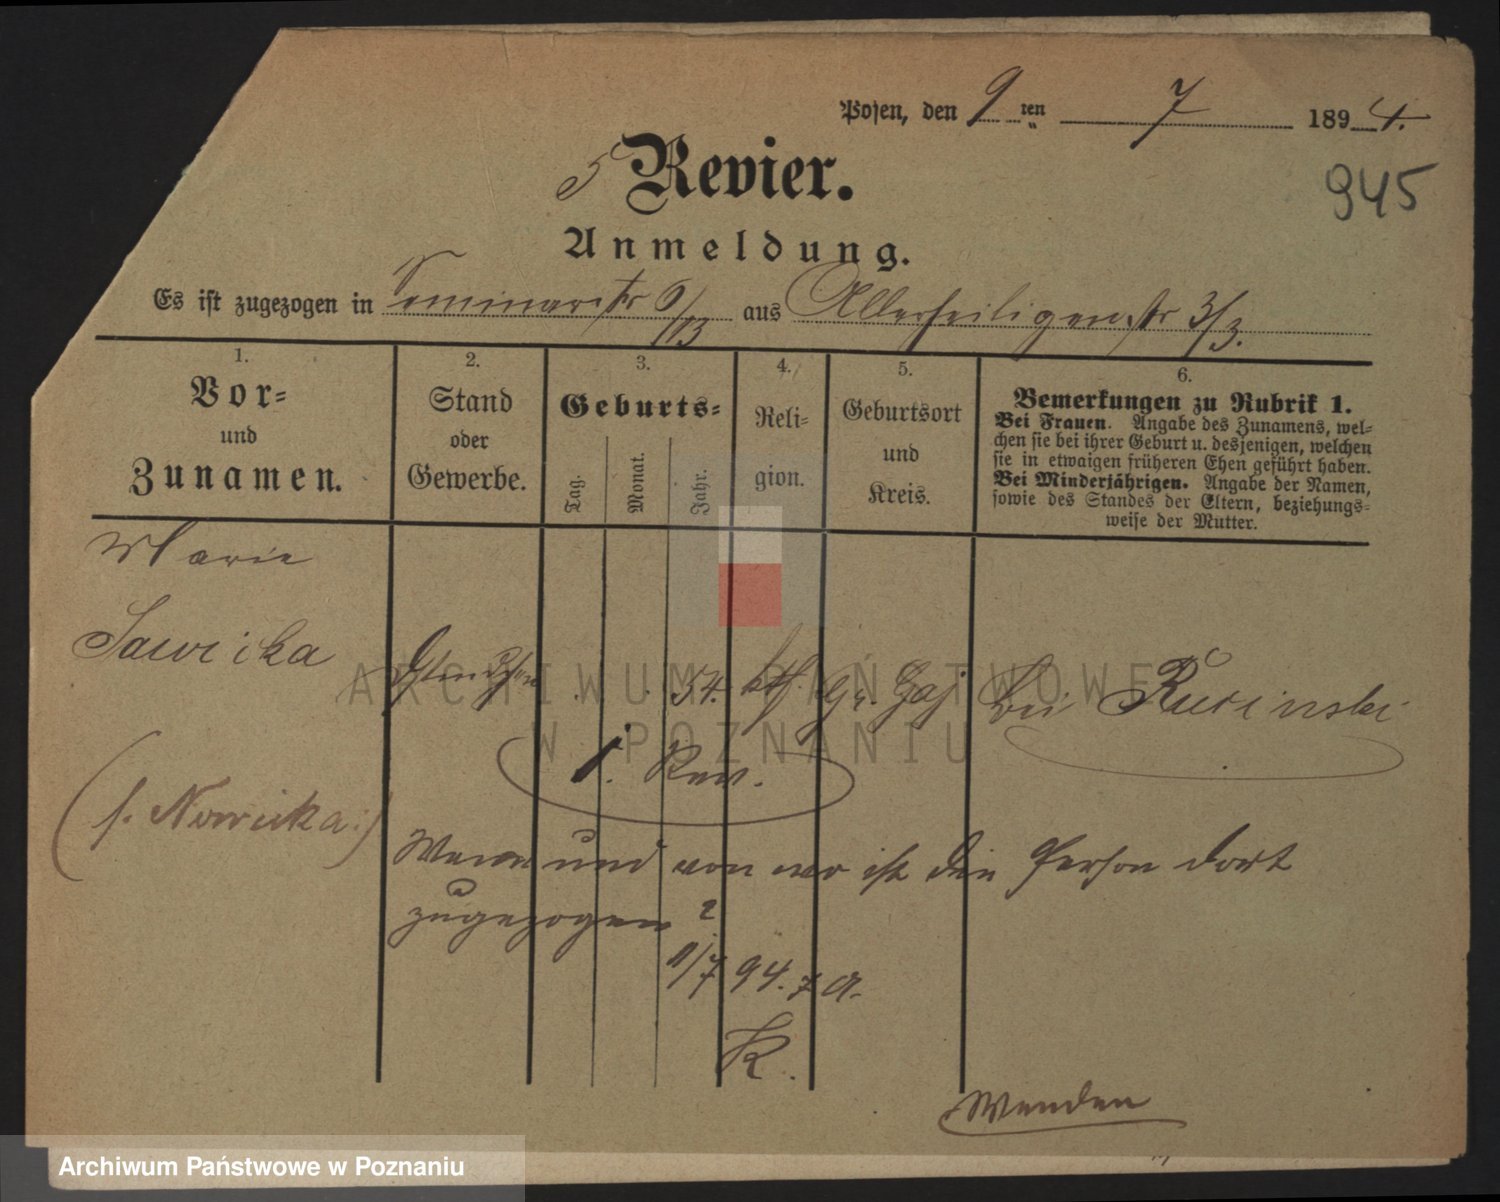 Posen, den 9 ten 7 1894.
945
5 Revier.
Anmeldung.
Es ist zugezogen in Seminarstr 9/13 aus Allerheiligenstr 3/3.
1. 2. 3. 4. 5. 6.
Vor- und Zunamen.
Stand oder Gewerbe.
Geburts-
Tag. Monat. Jahr.
Reli-
gion.
Geburtsort
und
Kreis.
Bemerkungen zu Rubrik 1.
Bei Frauen. Angabe des Zunamens, wel-
chen sie bei ihrer Geburt u. desjenigen, welchen
sie in etwaigen früheren Ehen geführt haben.
Bei Minderjährigen. Angabe der Namen,
sowie des Standes der Eltern, beziehungs-
weise der Mutter.
Marie
Sawicka 54. kth. Gr. Gaj bei Rusinski
ARCHIWUM PAŃSTWOWE
W POZNANIU
1. Rev.
(s. Nowicka:)
Wann und von wo ist die Person dort
zugezogen?
11/7 94.
K.
Wenden
Archiwum Państwowe w Poznaniu